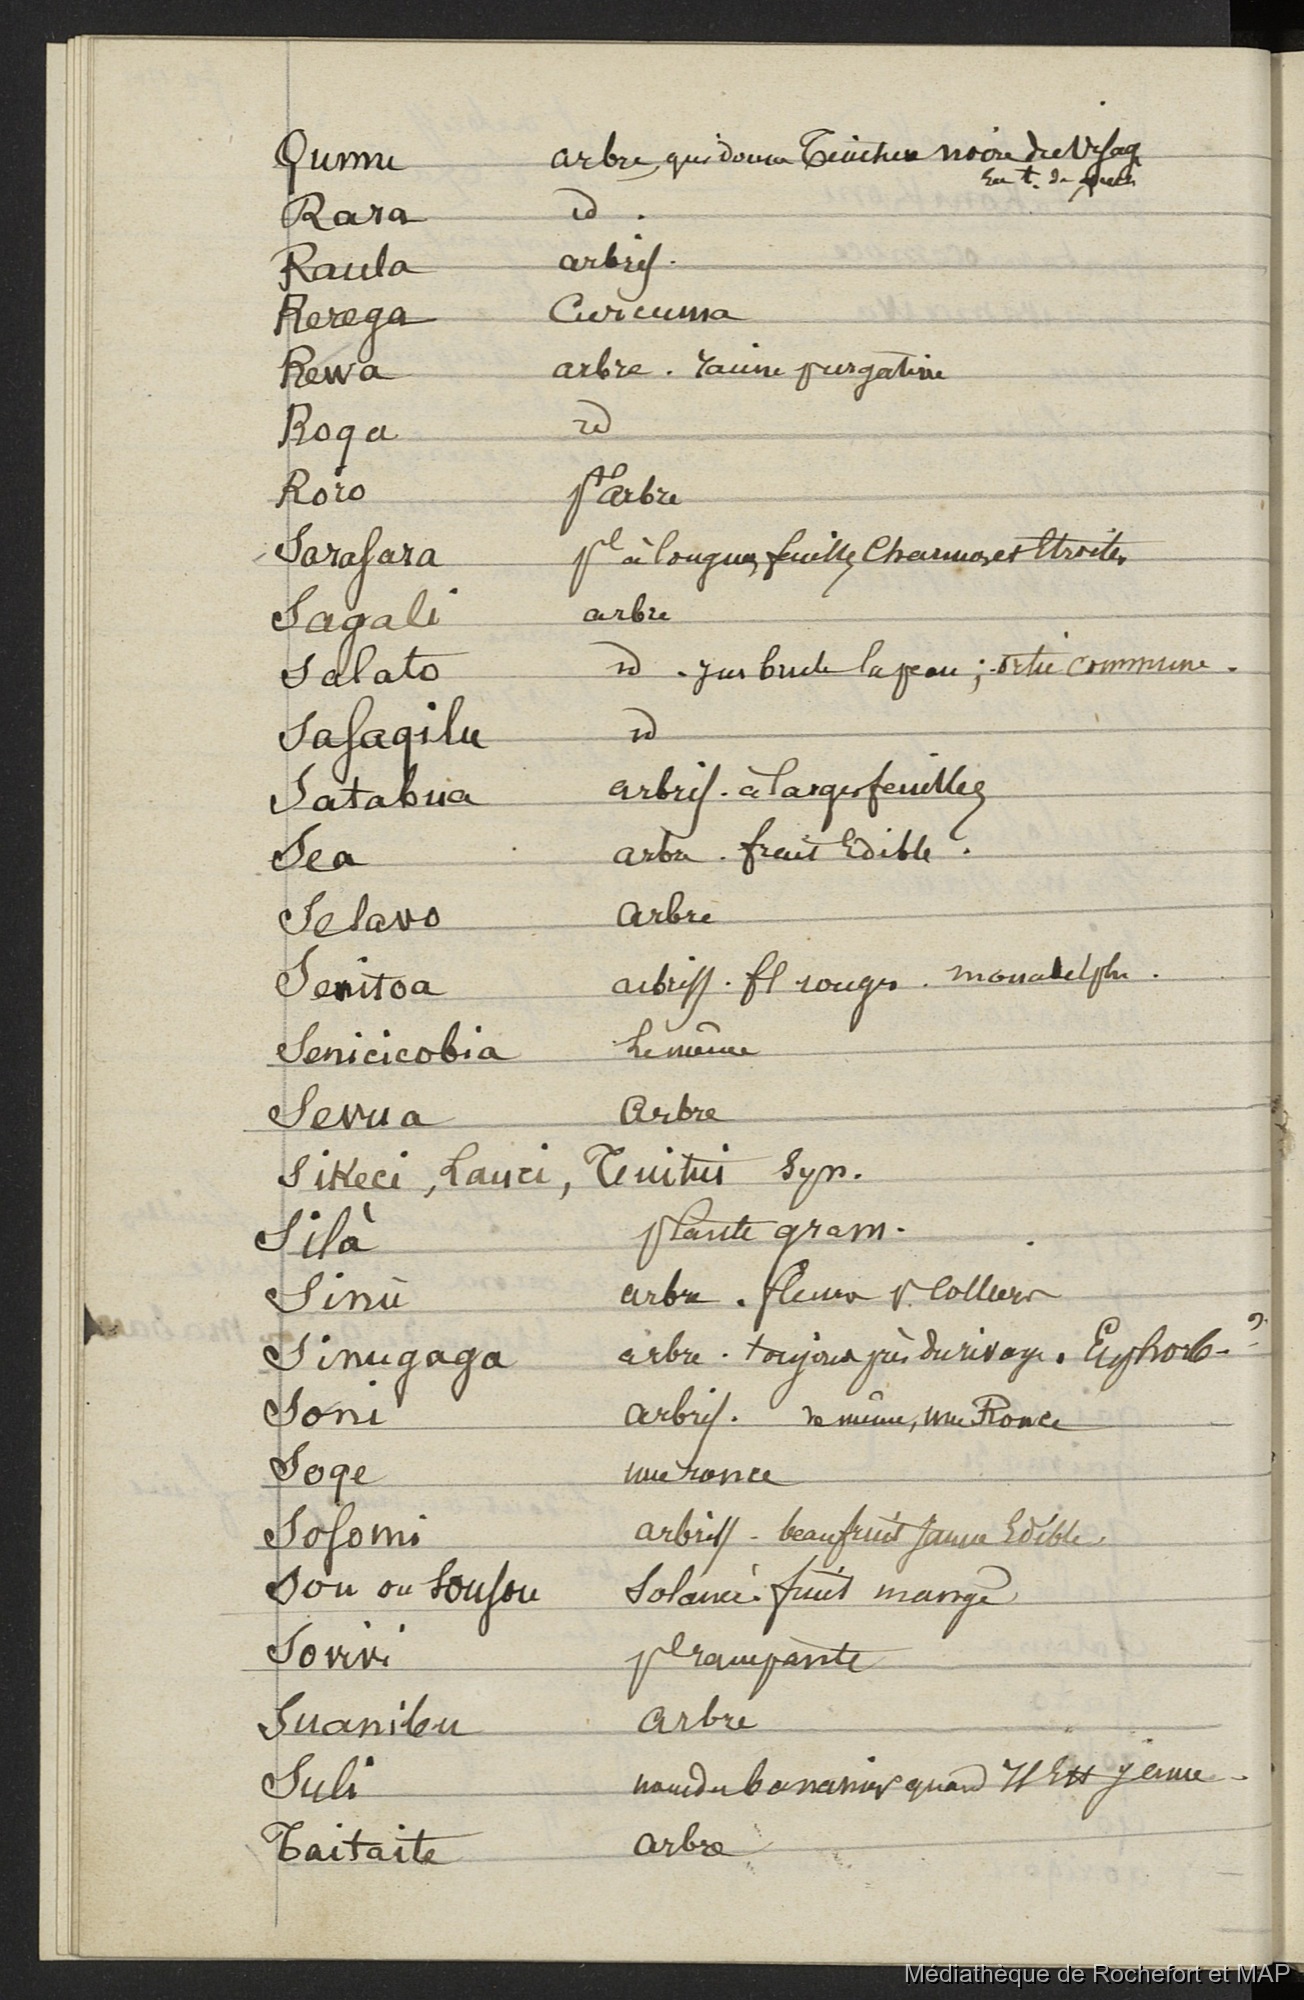 Qumu arbre, qui donne Teinture noire du Visag
en t. de guerre
Rara id .
Raula arbris.
Rerega Curcuma
Rewa arbre . racine purgative
Roga id
Roro pt arbre
Sarasara pl à longues feuilles Charnues et Etroites
Sagali arbre
Salato id . jus brule la peau ; ortie commune .
Sasaqilu id
Satabua arbris. à larges feuilles
Sea arbre . fruit Edible .
Selavo arbre
Senitoa arbriss . fl rouges . monadelphe .
Senicicobia le même
Sevua Arbre
Sikeci , Lauci , Tuitui Syn.
Silà plante gram.
Sinù arbre . fleurs p. Colliers
Sinugaga arbre . toujours près du rivage . Euphorb- ?
Soni arbris. de même, une Ronce
Soqe une ronce
Sosomi arbriss - beau fruit Jaune Edible .
Sou ou Sousou Solanée. fruit mangé
Sovivi pl rampante
Suanibu arbre
Suli nom du bananier quand Il Est jeune .
Taitaite arbre
Médiathèque de Rochefort et MAP